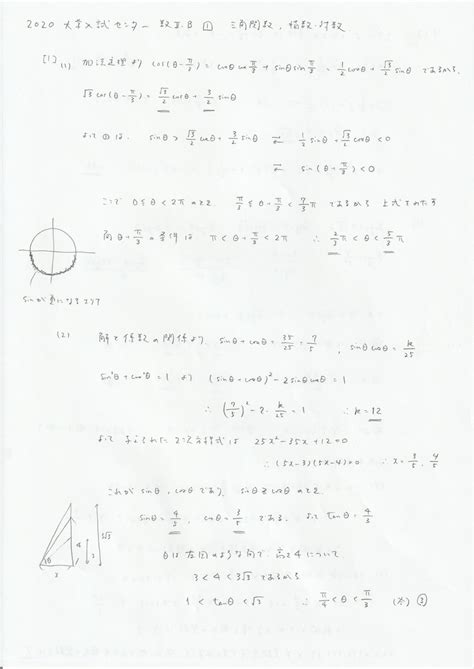 2020 大学入試センター 数Ⅱ・B ① 三角関数, 指数・対数
[1] (1) 加法定理より cos(θ-π/3) = cosθcosπ/3 + sinθsinπ/3 = 1/2cosθ + √3/2 sinθ であるから,
√3cos(θ-π/3) = √3/2 cosθ + 3/2 sinθ
よって①は, sinθ > √3/2 cosθ + 3/2 sinθ ⇄ 1/2 sinθ + √3/2 cosθ < 0
⇄ sin(θ+π/3) < 0
ここで 0≦θ<2π のとき π/3 ≦ θ+π/3 < 7/3π であるから 上式をみたす
角 θ+π/3 の条件は π < θ+π/3 < 2π ∴ 2/3π < θ < 5/3π
sinが負になるところ
(2) 解と係数の関係より sinθ+cosθ = 35/25 = 7/5, sinθcosθ = k/25
sin²θ+cos²θ=1 より (sinθ+cosθ)²-2sinθcosθ=1
∴ (7/5)²-2・k/25=1 ∴ k=12
よって 与えられた2次方程式は 25x²-35x+12=0
∴ (5x-3)(5x-4)=0 ∴ x=3/5, 4/5
これが sinθ, cosθであり, sinθ≧cosθのとき
sinθ=4/5, cosθ=3/5 である よって tanθ=4/3
θは左図のような角で, 高さ4について
3<4<3√3 であるから
1 < tanθ < √3 ∴ π/4 < θ < π/3 (答) ③
θ 3 4 3 3√3